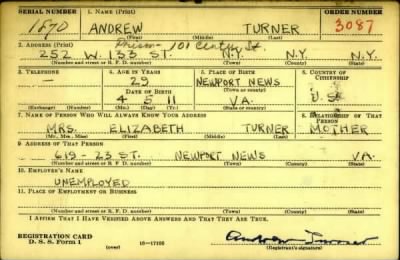 SERIAL NUMBER 1. NAME (Print) ORDER NUMBER
1870 ANDREW TURNER 3087
(First) (Middle) (Last)
2. ADDRESS (Print) 101 Centre St.
252 W. 133 ST. N.Y. N.Y. N.Y.
(Number and street or R. F. D. number) (Town) (County) (State)
3. TELEPHONE 4. AGE IN YEARS 5. PLACE OF BIRTH 6. COUNTRY OF CITIZENSHIP
— 29 NEWPORT NEWS
DATE OF BIRTH (Town or county)
4 5 11 VA. U.S.
(Exchange) (Number) (Mo.) (Day) (Yr.) (State or country)
7. NAME OF PERSON WHO WILL ALWAYS KNOW YOUR ADDRESS 8. RELATIONSHIP OF THAT PERSON
MRS. ELIZABETH TURNER MOTHER
(Mr., Mrs., Miss) (First) (Middle) (Last)
9. ADDRESS OF THAT PERSON
619-23 ST. NEWPORT NEWS VA.
(Number and street or R. F. D. number) (Town) (County) (State)
10. EMPLOYER'S NAME
UNEMPLOYED
11. PLACE OF EMPLOYMENT OR BUSINESS
(Number and street or R. F. D. number) (Town) (County) (State)
I AFFIRM THAT I HAVE VERIFIED ABOVE ANSWERS AND THAT THEY ARE TRUE.
REGISTRATION CARD
D. S. S. Form 1 (over) 16—17105 Andrew Turner
(Registrant's signature)